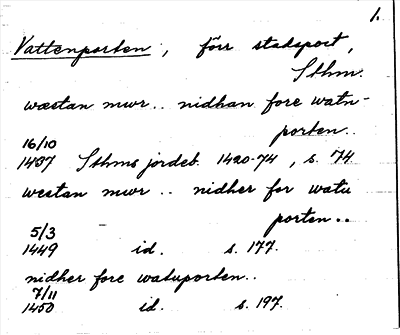 1.
Vattenporten, förr stadsport,
Sthm.
wæstan mwr.. nidhan fore watn-
porten..
16/10
1437 Sthms jordeb. 1420-74, s. 74.
westan mwr .. nidher for watu
porten..
5/3
1449 id. s. 177.
nidher fore watuporten..
7/11
1450 id. s. 197.